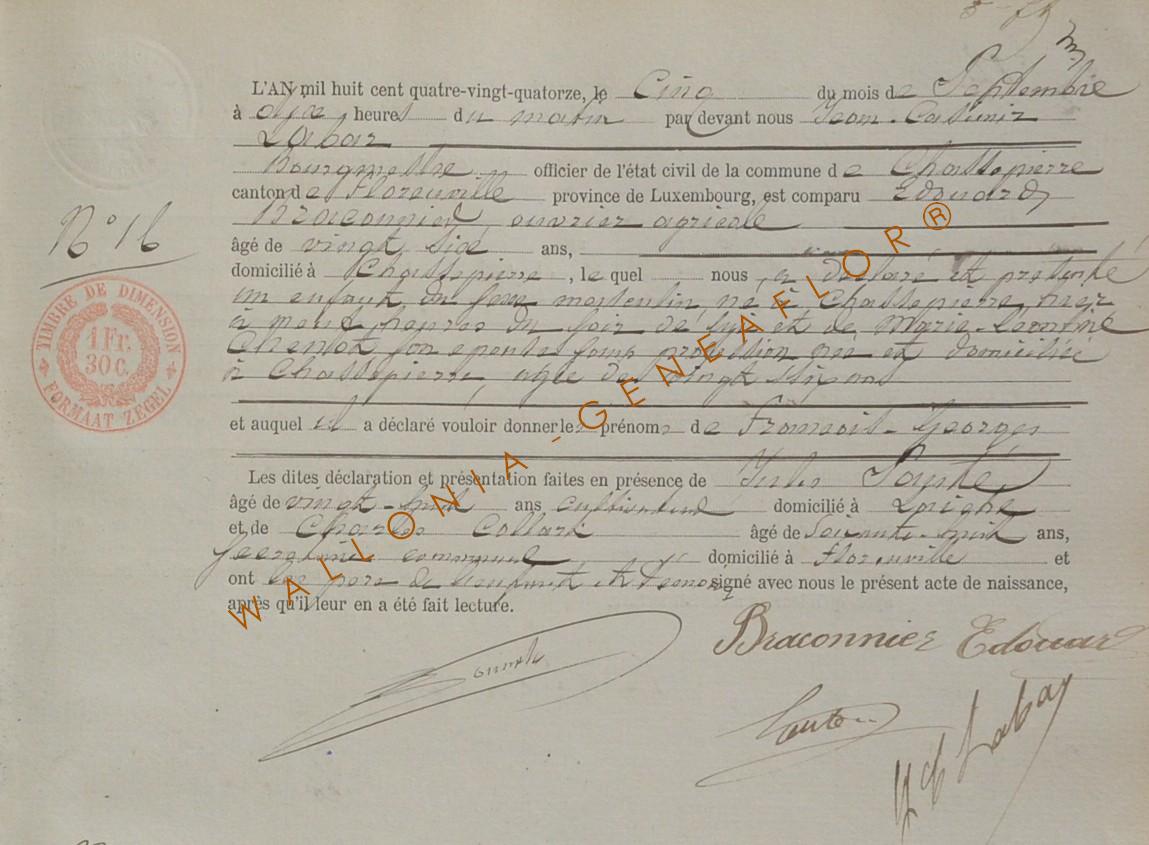 N° 16
L'AN mil huit cent quatre-vingt-quatorze, le Cinq du mois de Septembre
à dix heures du matin par devant nous Jean-Casimir
Labar
Bourgmestre officier de l'état civil de la commune de Chassepierre
canton de Florenville province de Luxembourg, est comparu Edouard
Braconnier ouvrier agricole
âgé de vingt six ans,
domicilié à Chassepierre, lequel nous a déclaré et présenté
un enfant du sexe masculin, né à Chassepierre, hier
à neuf heures du soir de lui et de Marie-Léontine
son épouse sans profession née et domiciliée
à Chassepierre, agée de vingt six ans
et auquel il a déclaré vouloir donner les prénoms de François-Georges
Les dites déclaration et présentation faites en présence de Jules
âgé de vingt-huit ans cultivateur domicilié à
et de Charles âgé de soixante-huit ans,
domicilié à Florenville et
ont les père de l'enfant et témoins signé avec nous le présent acte de naissance,
après qu'il leur en a été fait lecture.
Braconnier Edouard
Labar
TIMBRE DE DIMENSION
1 Fr.
30 C.
FORMAAT ZEGEL
WALLONIA-GENEAFLOR®